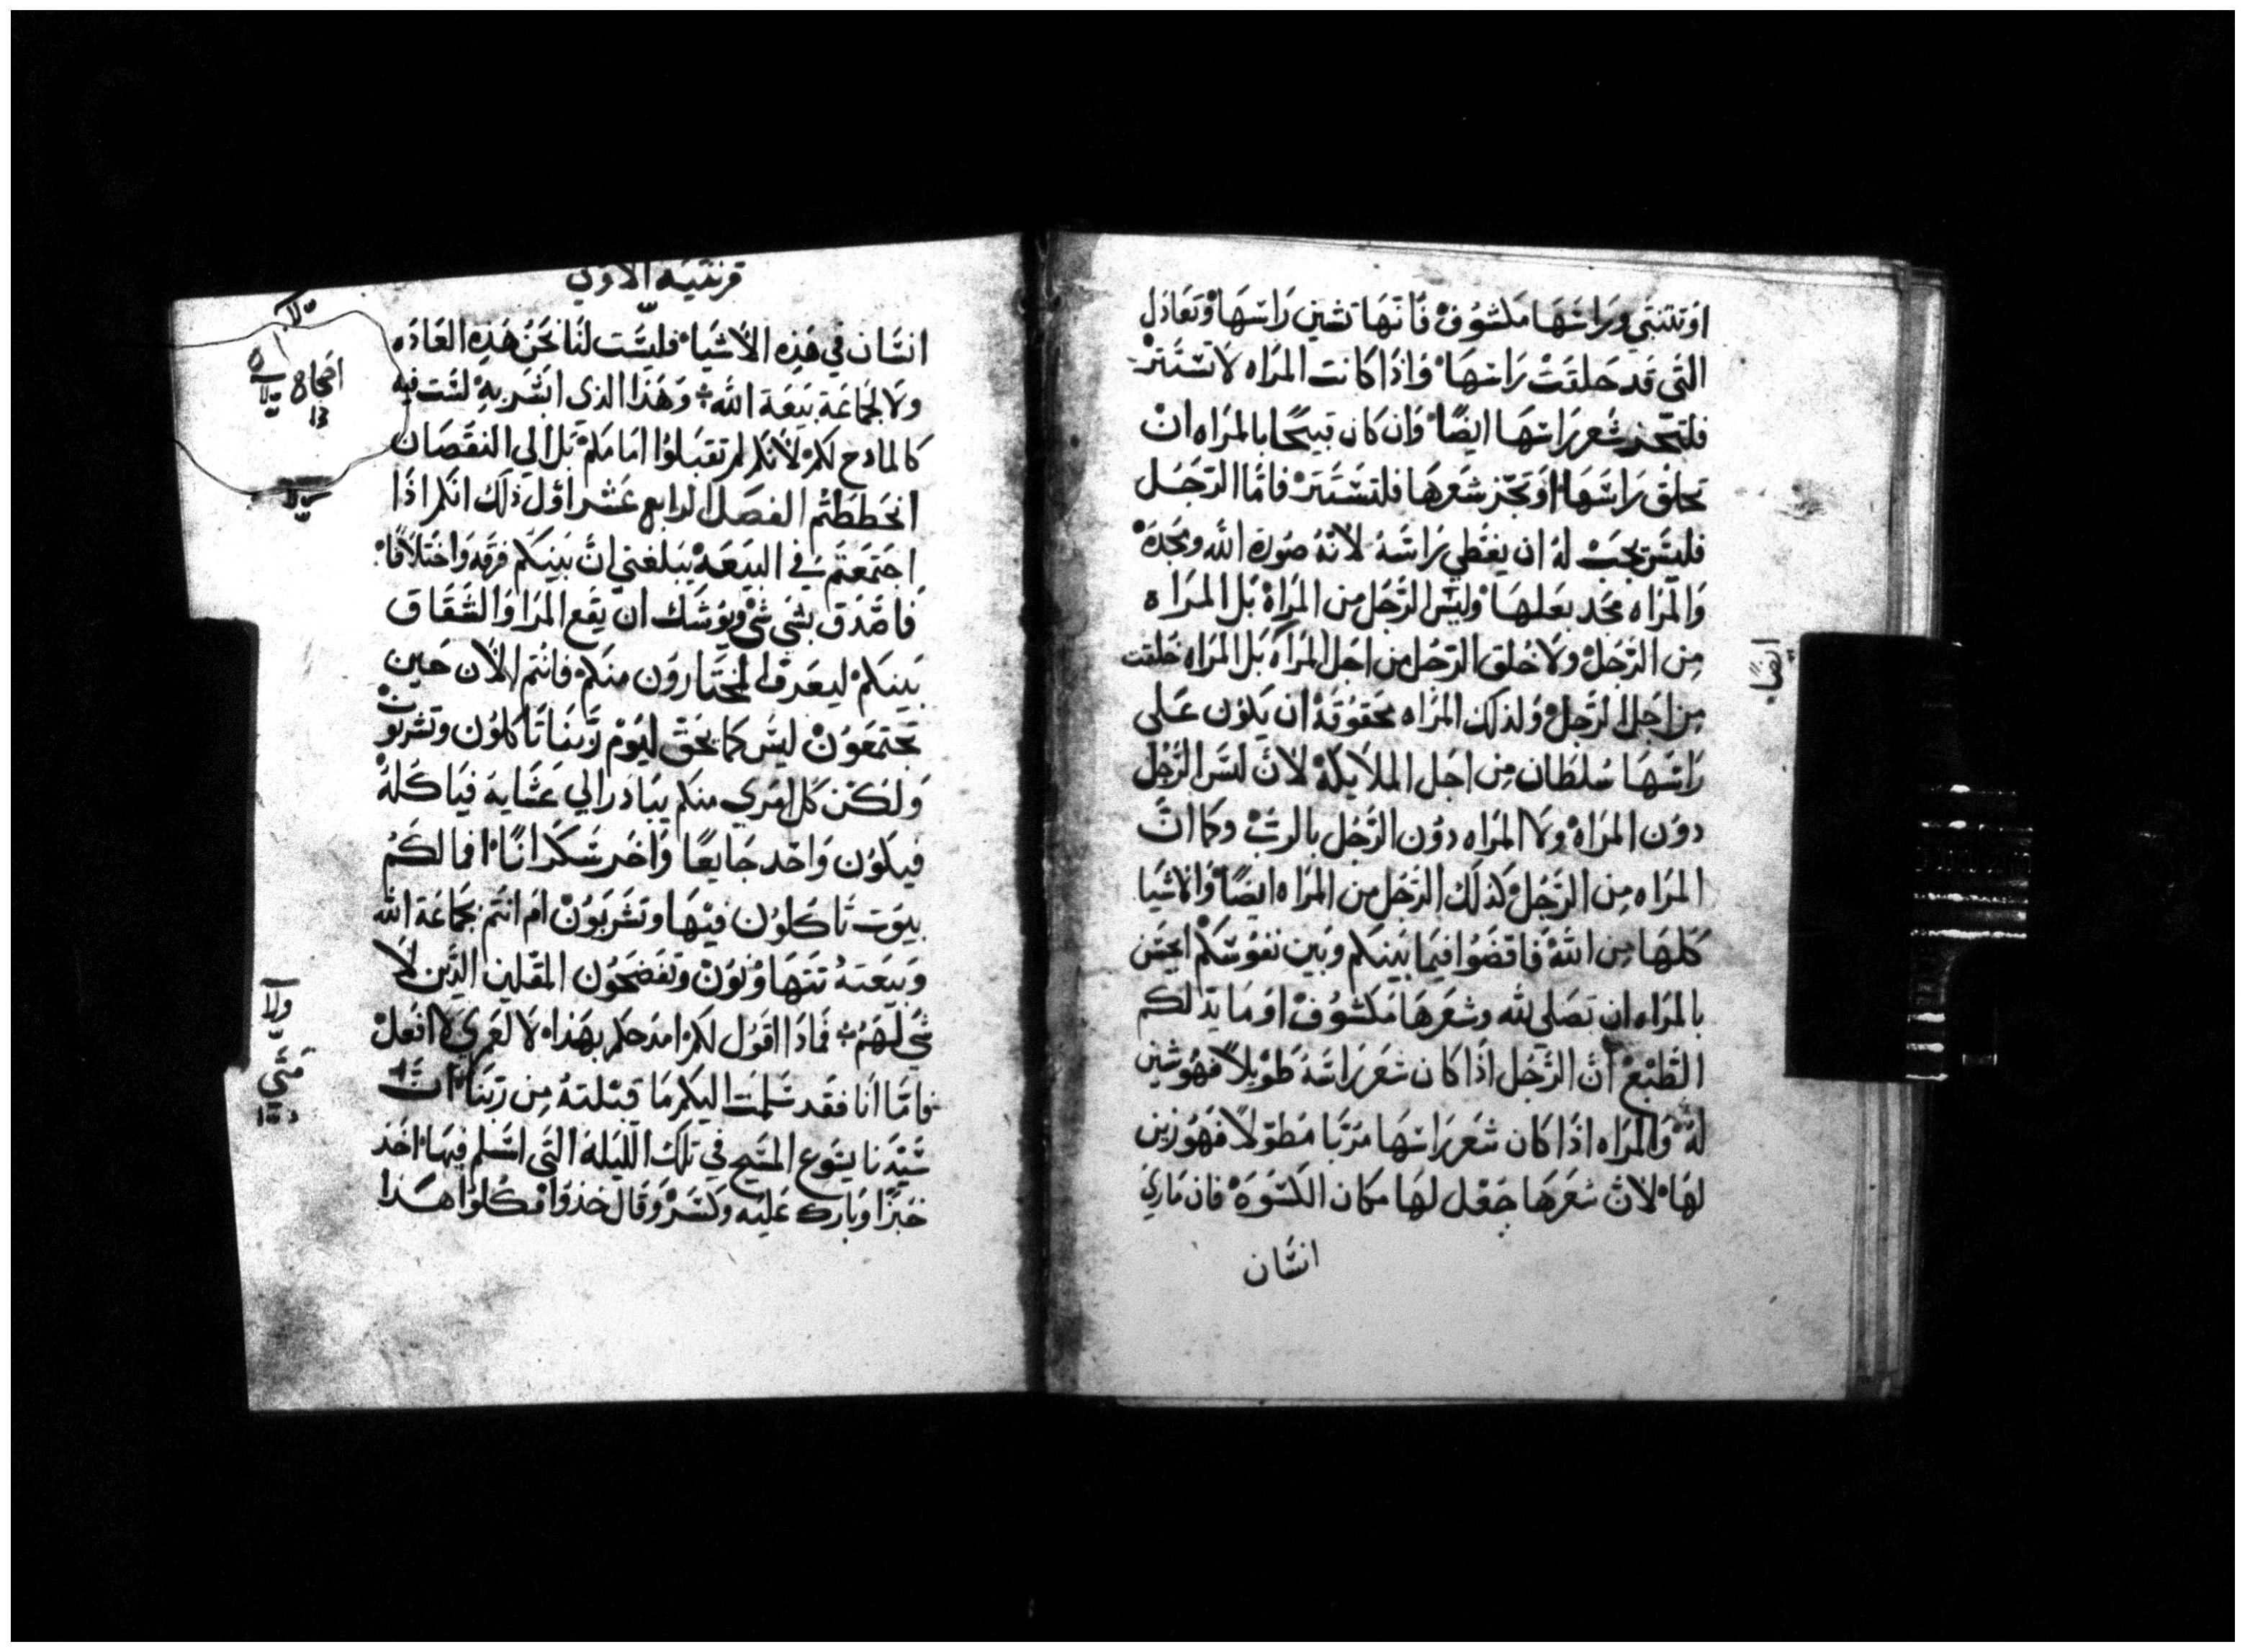 او تتنبي وراسها مكشوف فانها تشين راسها وتعادل
التي قد حلقت راسها واذا كانت المراه لا تستتر
فلتجز شعر راسها ايضًا وان كان قبيحًا بالمراه ان
تحلق راسها او تجز شعرها فلتستتر فامّا الرّجل
فليس يجب له ان يغطي راسه لانّه صورة الله ومجده
والمراه مجد بعلها وليس الرّجل من المراة بل المراه
من الرّجل ولا خلق الرّجل من اجل المراه بل المراه خلقت
من اجل الرّجل ولذلك المراه محقوقة ان يكون على
راسها سلطان من اجل الملايكة لانّ ليس الرّجل
دون المراة ولا المراه دون الرّجل بالربّ وكما انّ
المراه من الرّجل كذلك الرّجل من المراه ايضًا والاشيا
كلها من الله فاقضوا فيما بينكم وبين نفوسكم ايحسن
بالمراه ان تصلي لله وشعرها مكشوف او ما يدلكم
الطّبع انّ الرّجل اذا كان شعر راسه طويلاً فهو شين
له والمراه اذا كان شعر راسها مربّا مطوّلاً فهو زين
لها لانّ شعرها جعل لها مكان الكسوة فان ماري
انسان
ايضًا
قرنتيه الاولي
انسان في هذه الاشيا فليست لنا نحن هذه العاده
ولا لجماعة بيعة الله وهذا الذي ابشر به لست فيه
كالمادح لكم لانكم لم تقبلوا امامكم بل الي النقصان
انحططتم الفصل الرابع عشر اوّل ذلك انكم اذا
اجتمعتم في البيعة يبلغني انّ بينكم فرقه واختلافًا
فاصدق بشي شي ويوشك ان يقع المرا والشقاق
بينكم ليعرف المختارون منكم فانتم الان حين
تجتمعون ليس كما يحق ليوم ربّنا تاكلون وتشربون
ولكن كل امري منكم يبادر الي عشايه فياكله
فيكون واحد جايعًا واخر سكرانًا افما لكم
بيوت تاكلون فيها وتشربون ام انتم بجماعة الله
وبيعته تتهاونون وتفضحون المقلين الذّين لا
شي لهم فماذا اقول لكم امدحكم بهذا لا لعمري لا افعل
فامّا انا فقد سلمت اليكم ما قبلته من ربّنا انّ
سيّدنا يسوع المسيح في تلك الليلة التي اسلم فيها اخذ
خبزًا وبارك عليه وكسر وقال خذوا فكلوا هذا
اصحاح
متي